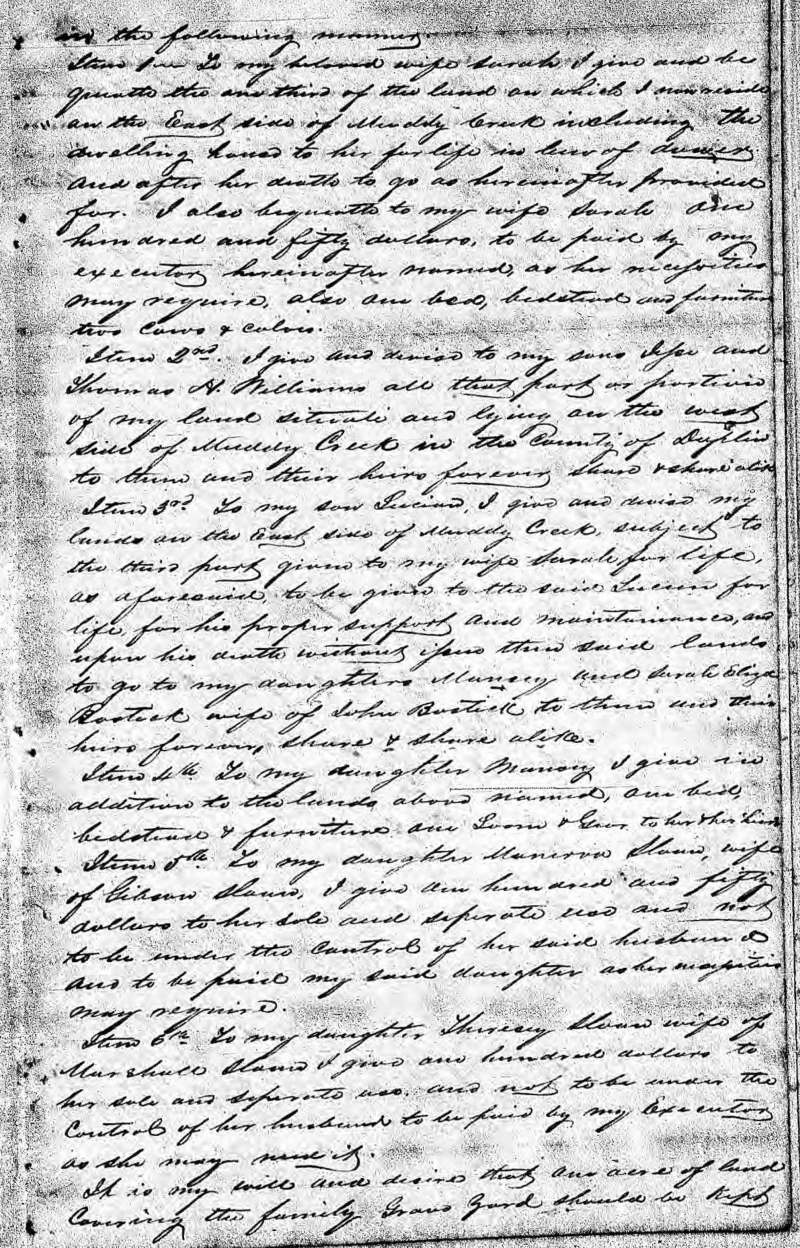 in the following manner.
Item 1st To my beloved wife Sarah I give and be
queath the one third of the land on which I now reside
on the East side of Muddy Creek including the
dwelling house to her for life in lieu of dower
and after her death to go as hereinafter provided
for. I also bequeath to my wife Sarah one
hundred and fifty dollars, to be paid by my
executor hereinafter named, as her necessities
may require, also one bed, bedstead and furniture
two cows & calves.
Item 2nd. I give and devise to my sons Jesse and
Thomas H. Williams all that part or portion
of my land situate and lying on the west
side of Muddy Creek in the County of Duplin
to them and their heirs forever share & share alike
Item 3rd To my son Lucian, I give and devise my
lands on the East side of Muddy Creek, subject to
the third part given to my wife Sarah for life,
as aforesaid, to be given to the said Lucian for
life, for his proper support and maintainance, and
upon his death without issue then said lands
to go to my daughters Mansey and Sarah Eliza
Bostick wife of John Bostick to them and their
heirs forever, share & share alike.
Item 4th To my daughter Mansey I give in
addition to the lands above named, one bed,
bedstead & furniture one Loom & Gear to her & her heirs
Item 5th To my daughter Manerva Sloan, wife
of Gibson Sloan, I give one hundred and fifty
dollars to her sole and seperate use and not
to be under the control of her said husband
and to be paid my said daughter as her necessities
may require.
Item 6th To my daughter Theresey Sloan wife of
Marshall Sloan I give one hundred dollars to
her sole and seperate use, and not to be under the
control of her husband to be paid by my Executor
as she may need it.
It is my will and desire that one acre of land
Covering the family Grave Yard should be Kept